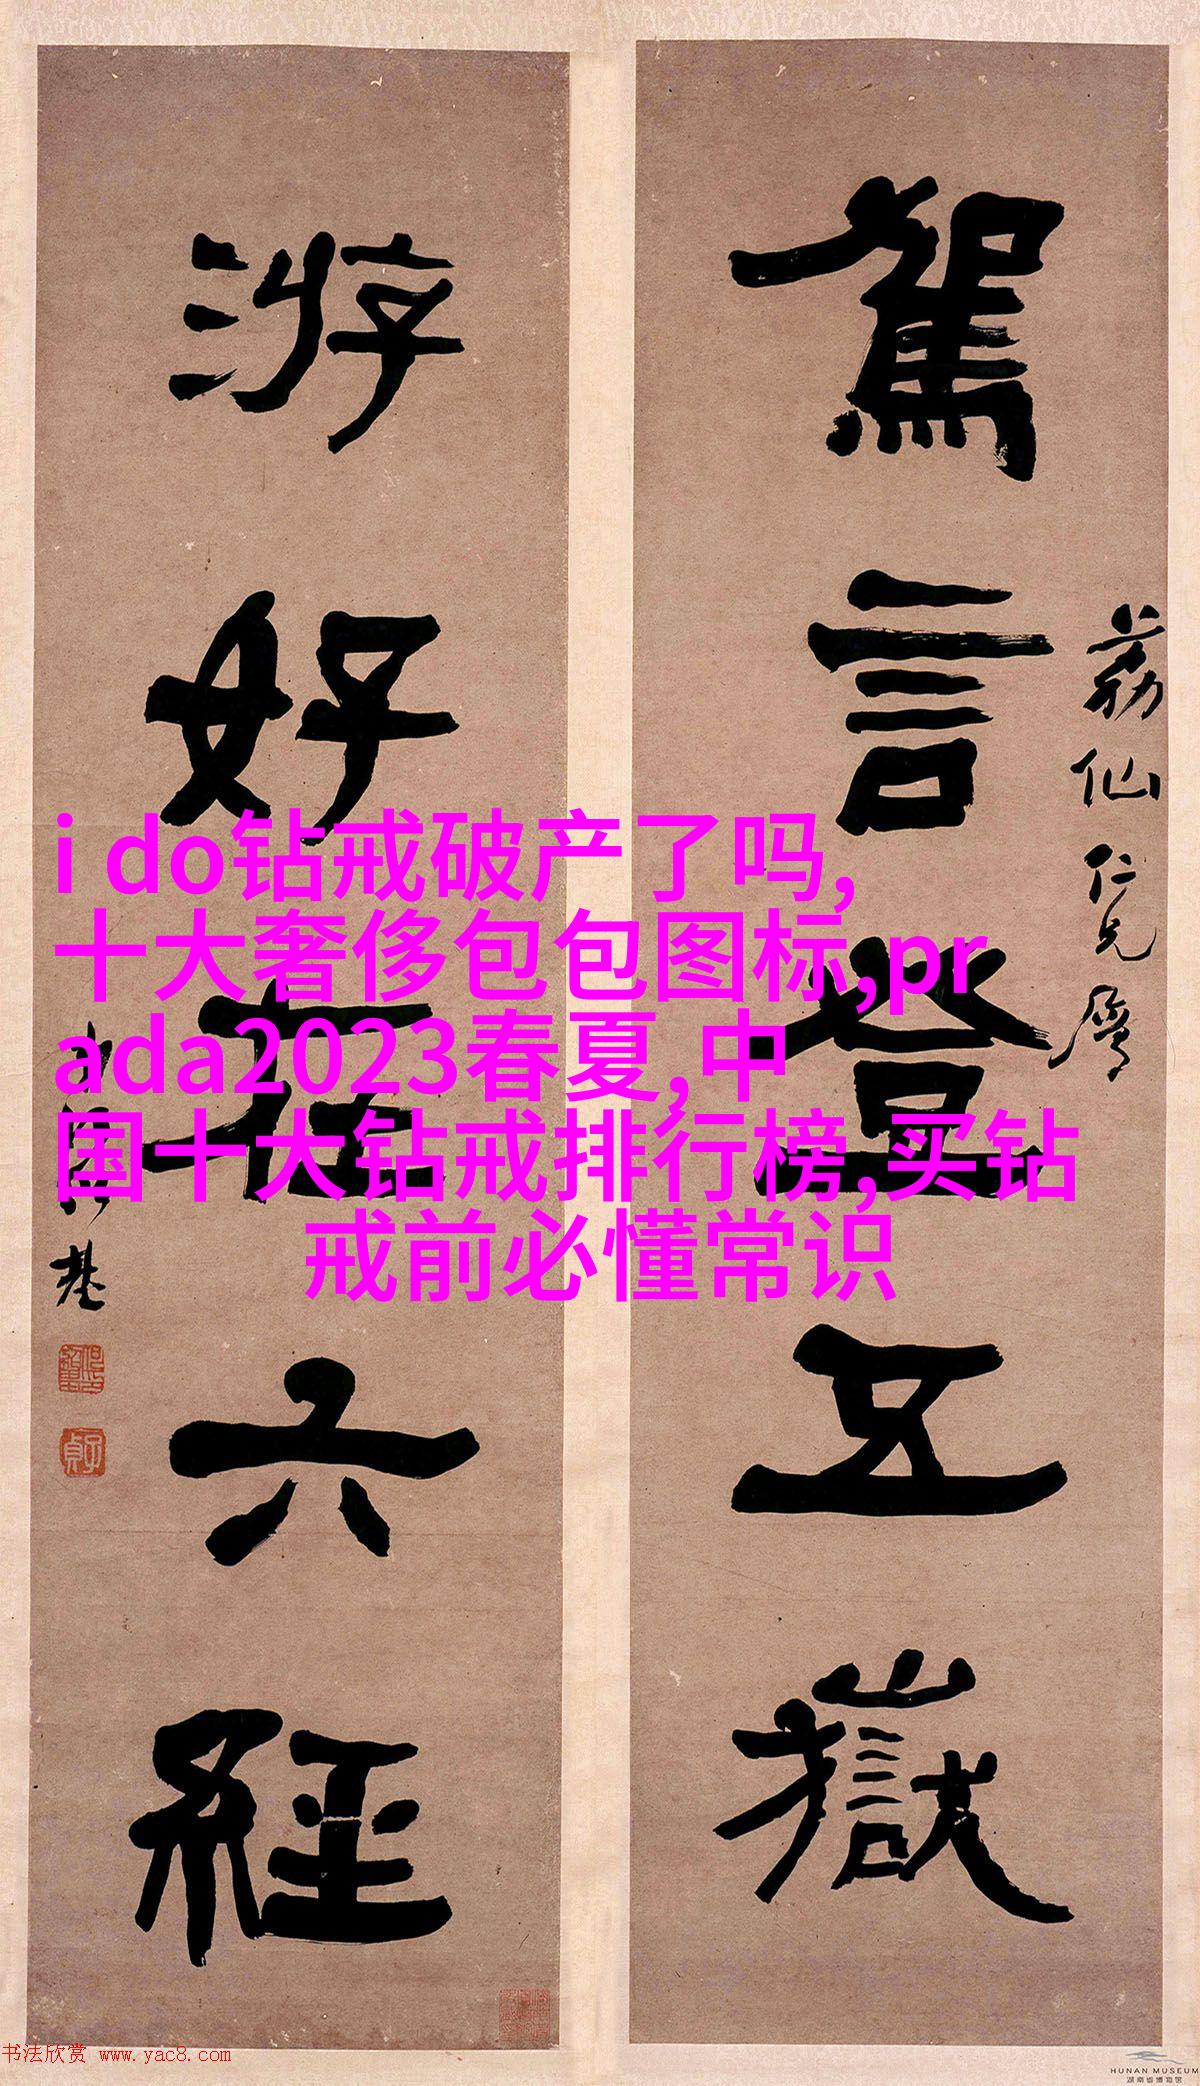 駕言登五嶽
荔仙仁兄屬
游好在六經
何紹基
子貞
i do钻戒破产了吗,
十大奢侈包包图标,pr
ada2023春夏,中
国十大钻戒排行榜,买钻
戒前必懂常识
书法欣赏 www.yac8.com
HUNAN MUSEUM
湖南省博物馆